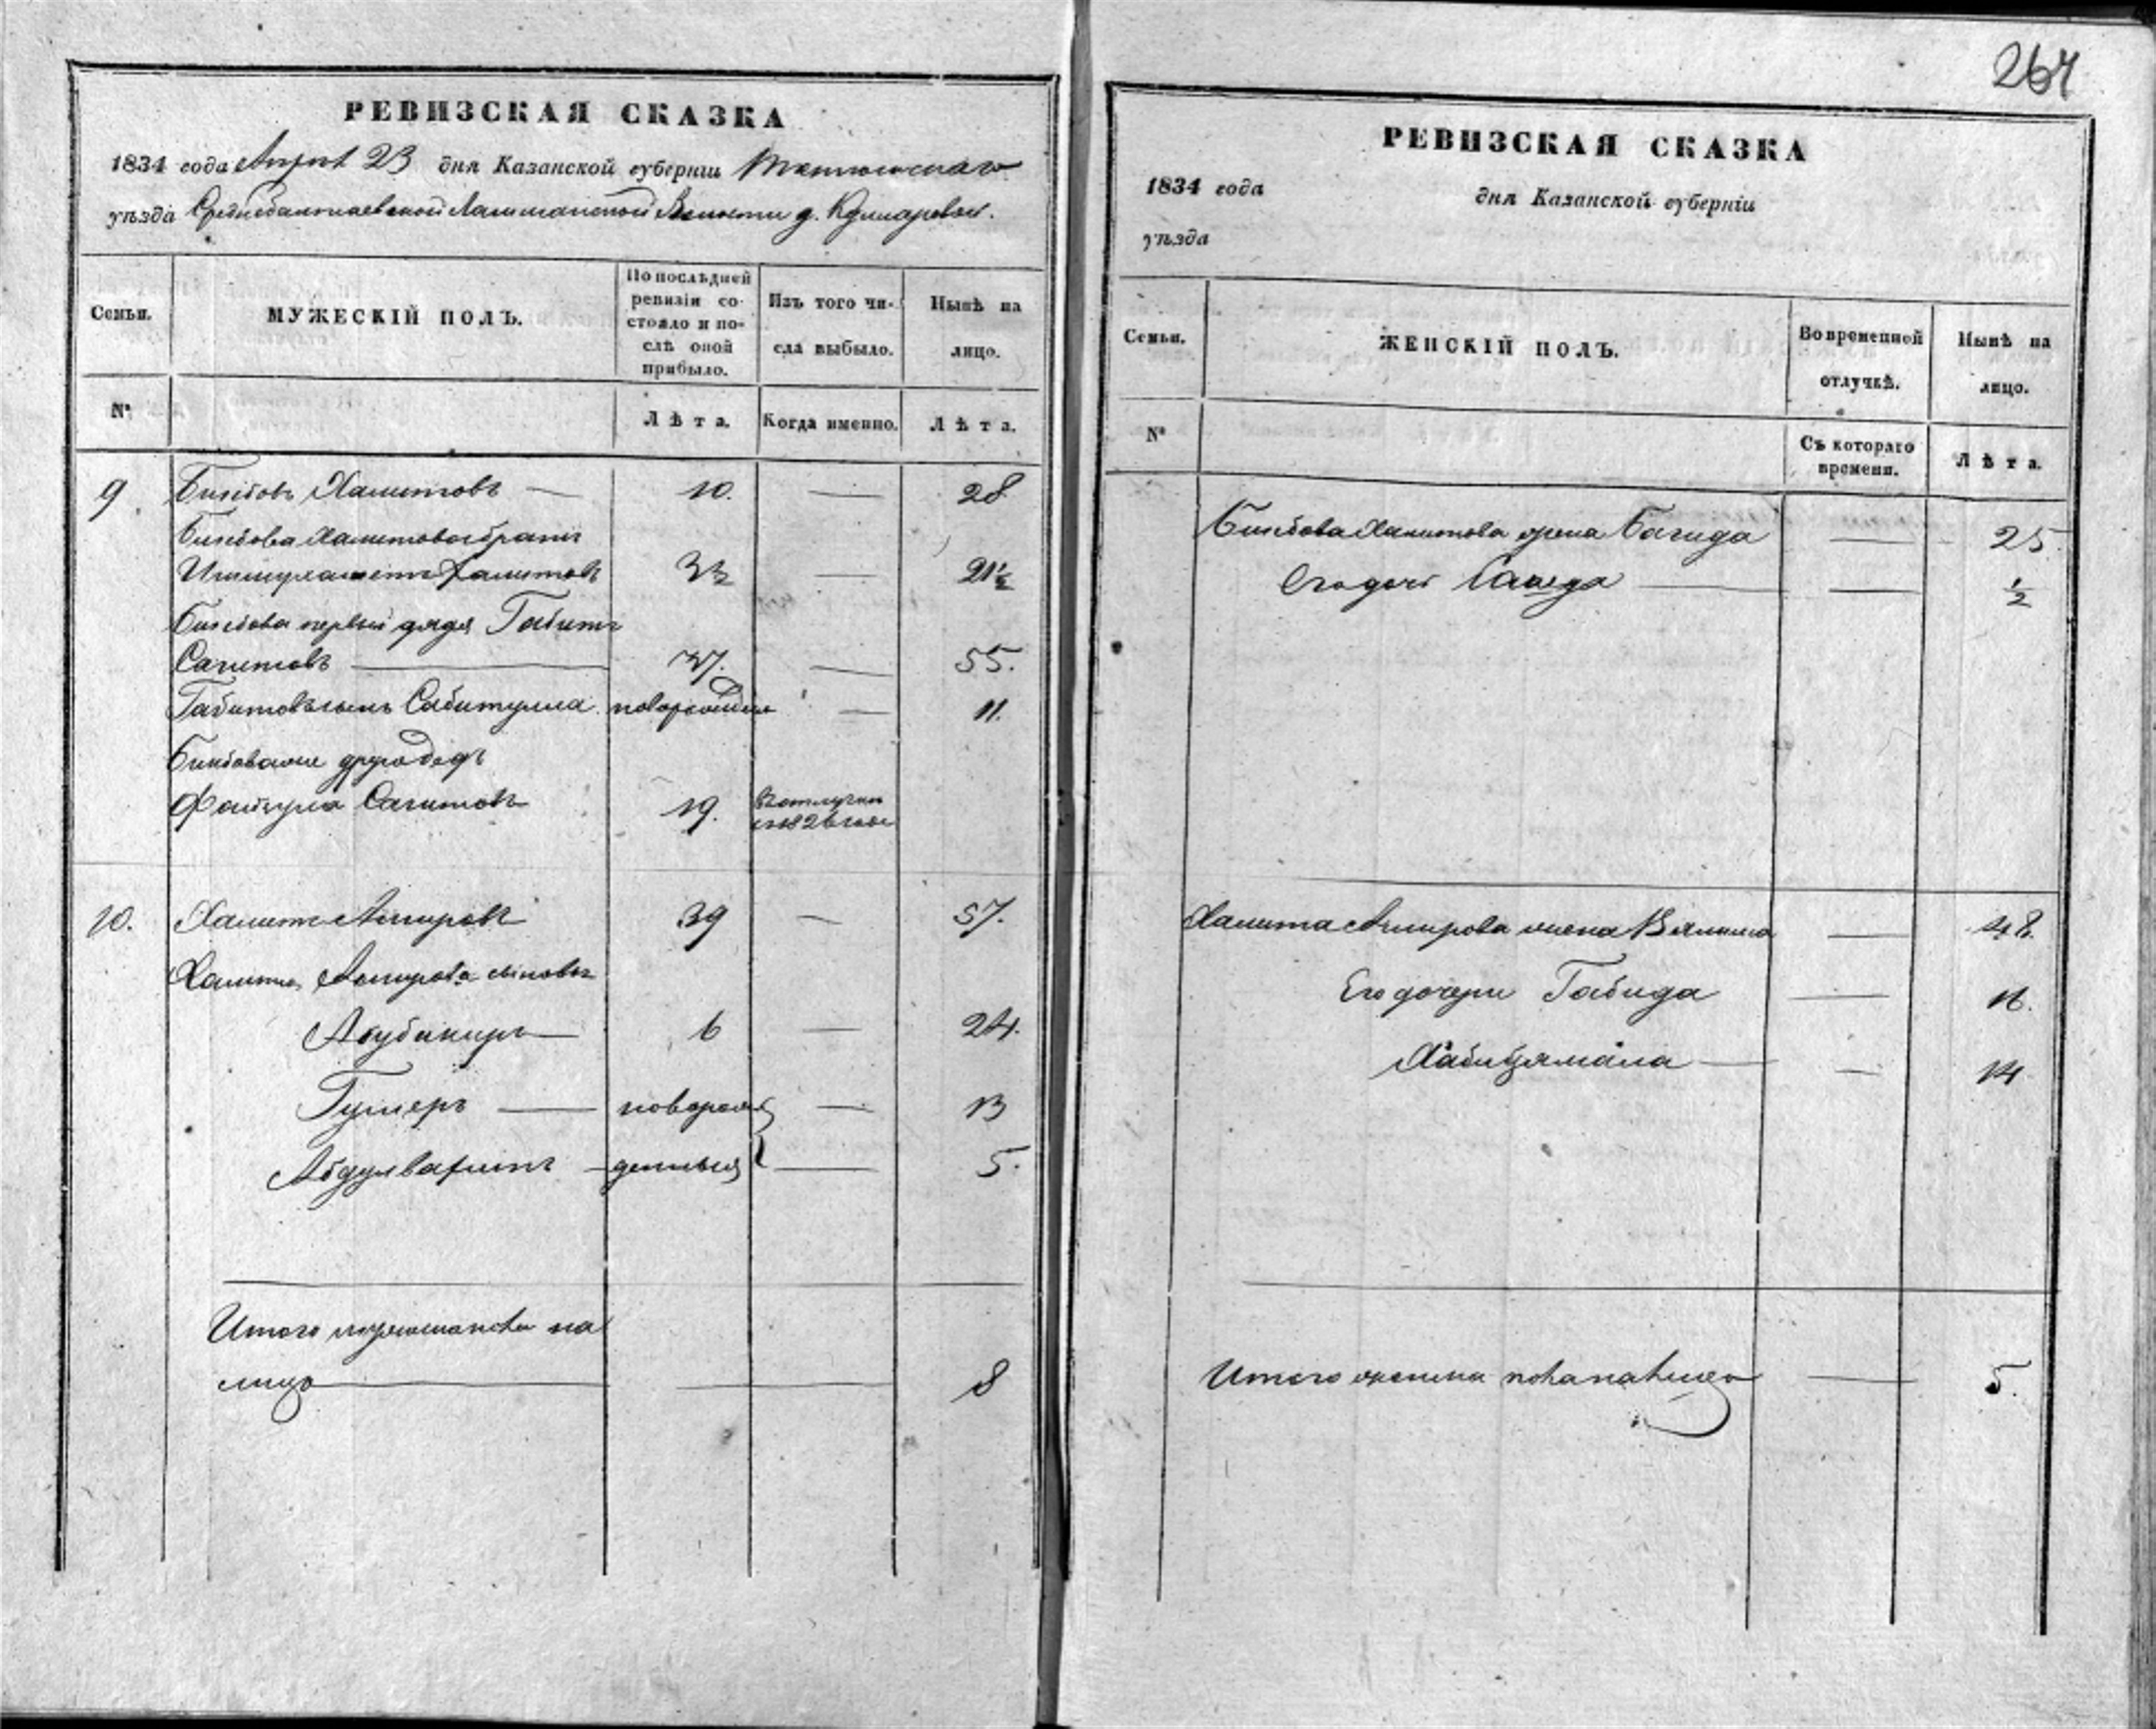 264
РЕВИЗСКАЯ СКАЗКА
1834 года Апреля 23 дня Казанской губерніи Тетюшскаго
уѣзда Среднебалтаевской Лашманской Волости д.
Семьи.
МУЖЕСКІЙ ПОЛЪ.
По послѣдней ревизіи состояло и послѣ оной прибыло.
Изъ того числа выбыло.
Нынѣ на лицо.
№
Лѣта.
Когда именно.
Лѣта.
9. Бикбовъ Хамитовъ — 10. — 28
Бикбова Хамитова братъ
Хамитовъ 3½ — 21½
Бикбова первый дядя Габитъ
Сагитовъ — 37. — 55.
Габитовъ сынъ Сабитулла новорожден — 11.
Бикбова другой дядя
Сагитовъ 19. в отлучке с 1826 года
10. Хамитъ Амировъ 39 — 57.
Хамита Амирова сыновья
Абубакиръ — 6 — 24.
Гумеръ — новорож — 13
— денныя — 5.
Итого мужеска на
лицо — 8
РЕВИЗСКАЯ СКАЗКА
1834 года дня Казанской губерніи
уѣзда
Семьи.
ЖЕНСКІЙ ПОЛЪ.
Во временной отлучкѣ.
Нынѣ на лицо.
№
Съ котораго времени.
Лѣта.
Бикбова Хамитова жена Багида — 25.
Его дочь Саида — ½
Хамита Амирова жена — 48.
Его дочери Габида — 16.
Хабизямала — 14
Итого женска пола на лицо — 5.